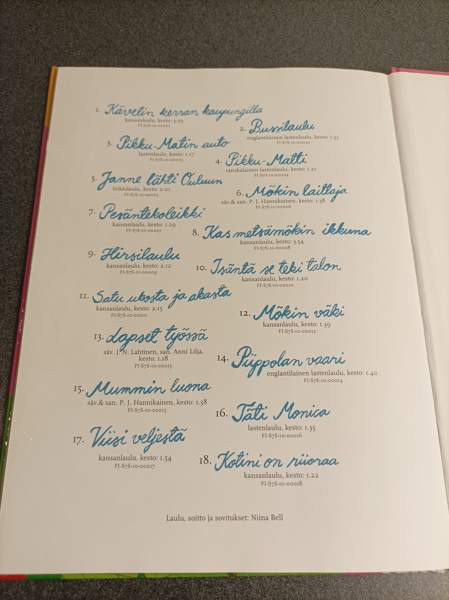 1. Kävelin kerran kaupungilla
kansanlaulu, kesto:
2. Bussilaulu
englantilainen lastenlaulu, kesto: 1.35
3. Pikku-Matin auto
lastenlaulu, kesto: 1.17
4. Pikku-Matti
lastenlaulu, kesto: 1.21
5. Janne lähti Ouluun
leikkilaulu, kesto: 2.01
6. Mökin laittaja
säv & san. P. J. Hannikainen, kesto: 1.38
7. Pesäntekoleikki
kansanlaulu, kesto: 1.29
8. Kas metsämökin ikkuna
kansanlaulu, kesto: 3.54
9. Hirsilaulu
kansanlaulu, kesto: 2.12
10. Isäntä se teki talon
kansanlaulu, kesto: 1.40
11. Satu ukosta ja akasta
kansanlaulu, kesto: 2.15
12. Mökin väki
kansanlaulu, kesto: 1.39
13. Lapset työssä
säv. I. N. Lahtinen, san. Anni Lilja,
kesto: 2.18
14. Piippolan vaari
englantilainen lastenlaulu, kesto: 1.40
15. Mummin luona
säv & san. P. J. Hannikainen, kesto: 1.58
16. Täti Monica
lastenlaulu, kesto: 1.35
17. Viisi veljestä
kansanlaulu, kesto: 1.54
FI-878-10-00017
18. Kotini on riioraa
kansanlaulu, kesto: 1.22
FI-878-10-00018
Laulu, soitto ja sovitukset: Niina Bell